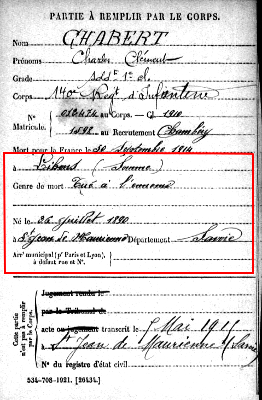 PARTIE À REMPLIR PAR LE CORPS.
Nom CHABERT
Prénoms Charles Clément
Grade Soldt 1e cl.
Corps 140e Régt d'Infanterie
N° 013474 au Corps. — Cl. 1910
Matricule. 1582 au Recrutement Chambéry
Mort pour la France le 30 Septembre 1914
à Lihons (Somme)
Genre de mort Tué à l'ennemi
Né le 26 Juillet 1890
à St Jean de Maurienne Département Savoie
Arrt municipal (pr Paris et Lyon),
à défaut rue et N°.
Cette partie n'est pas à remplir par le Corps.
Jugement rendu le
par le Tribunal de
acte ou jugement transcrit le 5 Mai 1915
à St Jean de Maurienne (Savoie)
N° du registre d'état civil
534-708-1921. [26434.]